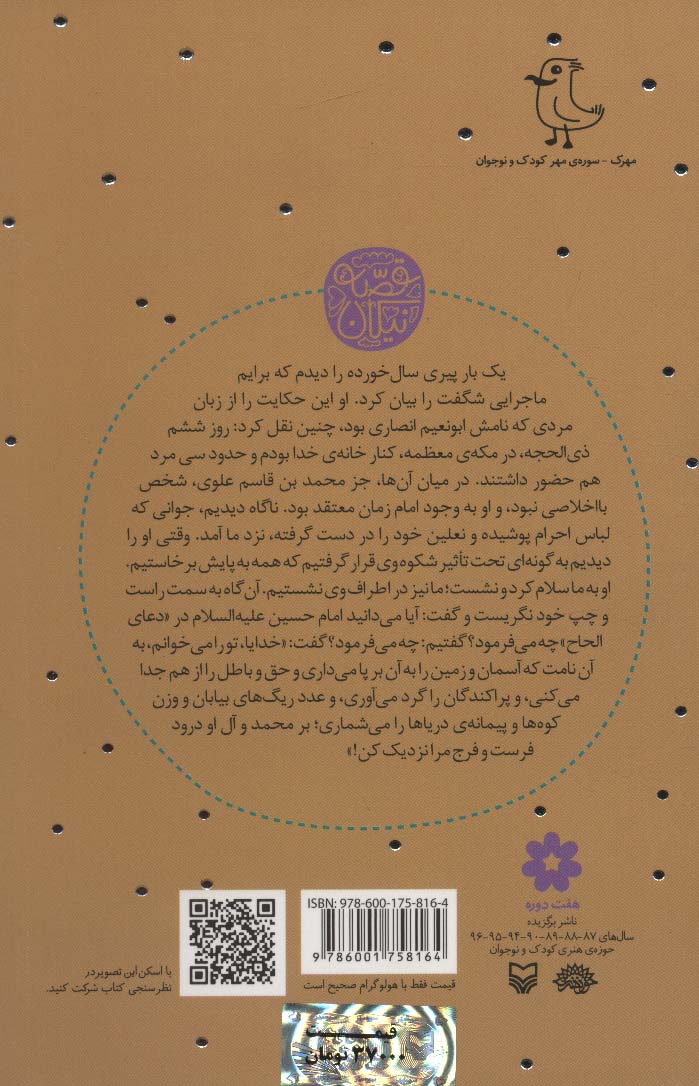 مهرک - سوره‌ی مهر کودک و نوجوان
قصه
نیکان
یک بار پیری سال‌خورده را دیدم که برایم
ماجرایی شگفت را بیان کرد. او این حکایت را از زبان
مردی که نامش ابونعیم انصاری بود، چنین نقل کرد: روز ششم
ذی‌الحجه، در مکه‌ی معظمه، کنار خانه‌ی خدا بودم و حدود سی مرد
هم حضور داشتند. در میان آن‌ها، جز محمد بن قاسم علوی، شخص
بااخلاصی نبود، و او به وجود امام زمان معتقد بود. ناگاه دیدیم، جوانی که
لباس احرام پوشیده و نعلین خود را در دست گرفته، نزد ما آمد. وقتی او را
دیدیم به گونه‌ای تحت تأثیر شکوه وی قرار گرفتیم که همه به پایش برخاستیم.
او به ما سلام کرد و نشست؛ ما نیز در اطراف وی نشستیم. آن گاه به سمت راست
و چپ خود نگریست و گفت: آیا می‌دانید امام حسین علیه‌السلام در «دعای
الحاح» چه می‌فرمود؟ گفتیم: چه می‌فرمود؟ گفت: «خدایا، تو را می‌خوانم، به
آن نامت که آسمان و زمین را به آن بر پا می‌داری و حق و باطل را از هم جدا
می‌کنی، و پراکندگان را گرد می‌آوری، و عدد ریگ‌های بیابان و وزن
کوه‌ها و پیمانه‌ی دریاها را می‌شماری؛ بر محمد و آل او درود
فرست و فرج مرا نزدیک کن!»
هفت دوره
ناشر برگزیده
سال‌های ۸۷-۸۸-۸۹-۹۰-۹۴-۹۵-۹۶
حوزه‌ی هنری کودک و نوجوان
ISBN: 978-600-175-816-4
9 786001 758164
قیمت فقط با هولوگرام صحیح است
با اسکن این تصویر در
نظرسنجی کتاب شرکت کنید.
قیمت
۳۷۰۰۰ تومان